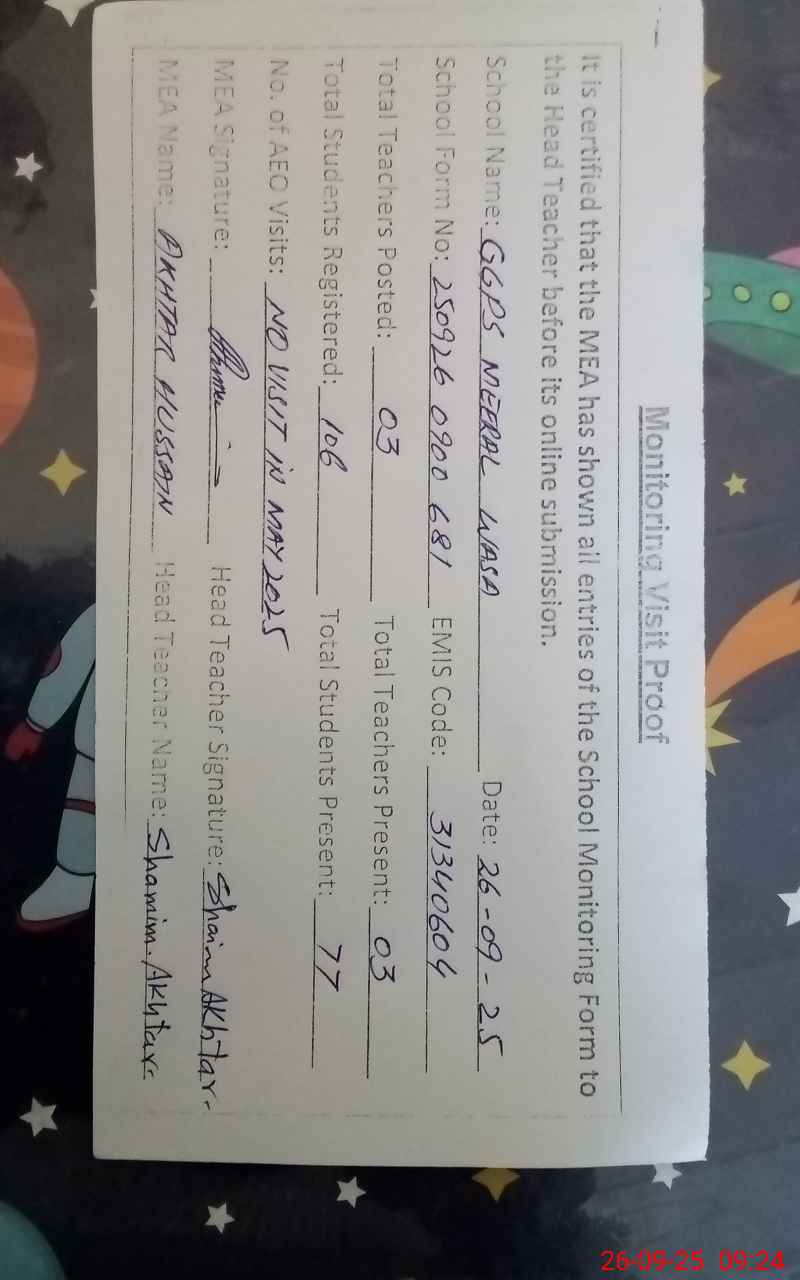 Monitoring Visit Proof
It is certified that the MEA has shown all entries of the School Monitoring Form to
the Head Teacher before its online submission.
School Name: GGPS MEERAL WASA Date: 26-09-25
School Form No: 250926 0900 681 EMIS Code: 31340604
Total Teachers Posted: 03 Total Teachers Present: 03
Total Students Registered: 106 Total Students Present: 77
No. of AEO Visits: NO VISIT IN MAY 2025
MEA Signature: Head Teacher Signature: Shaim Akhtar
MEA Name: AKHTAR HUSSAIN Head Teacher Name: Shamim. Akhtar
26-09-25 09:24